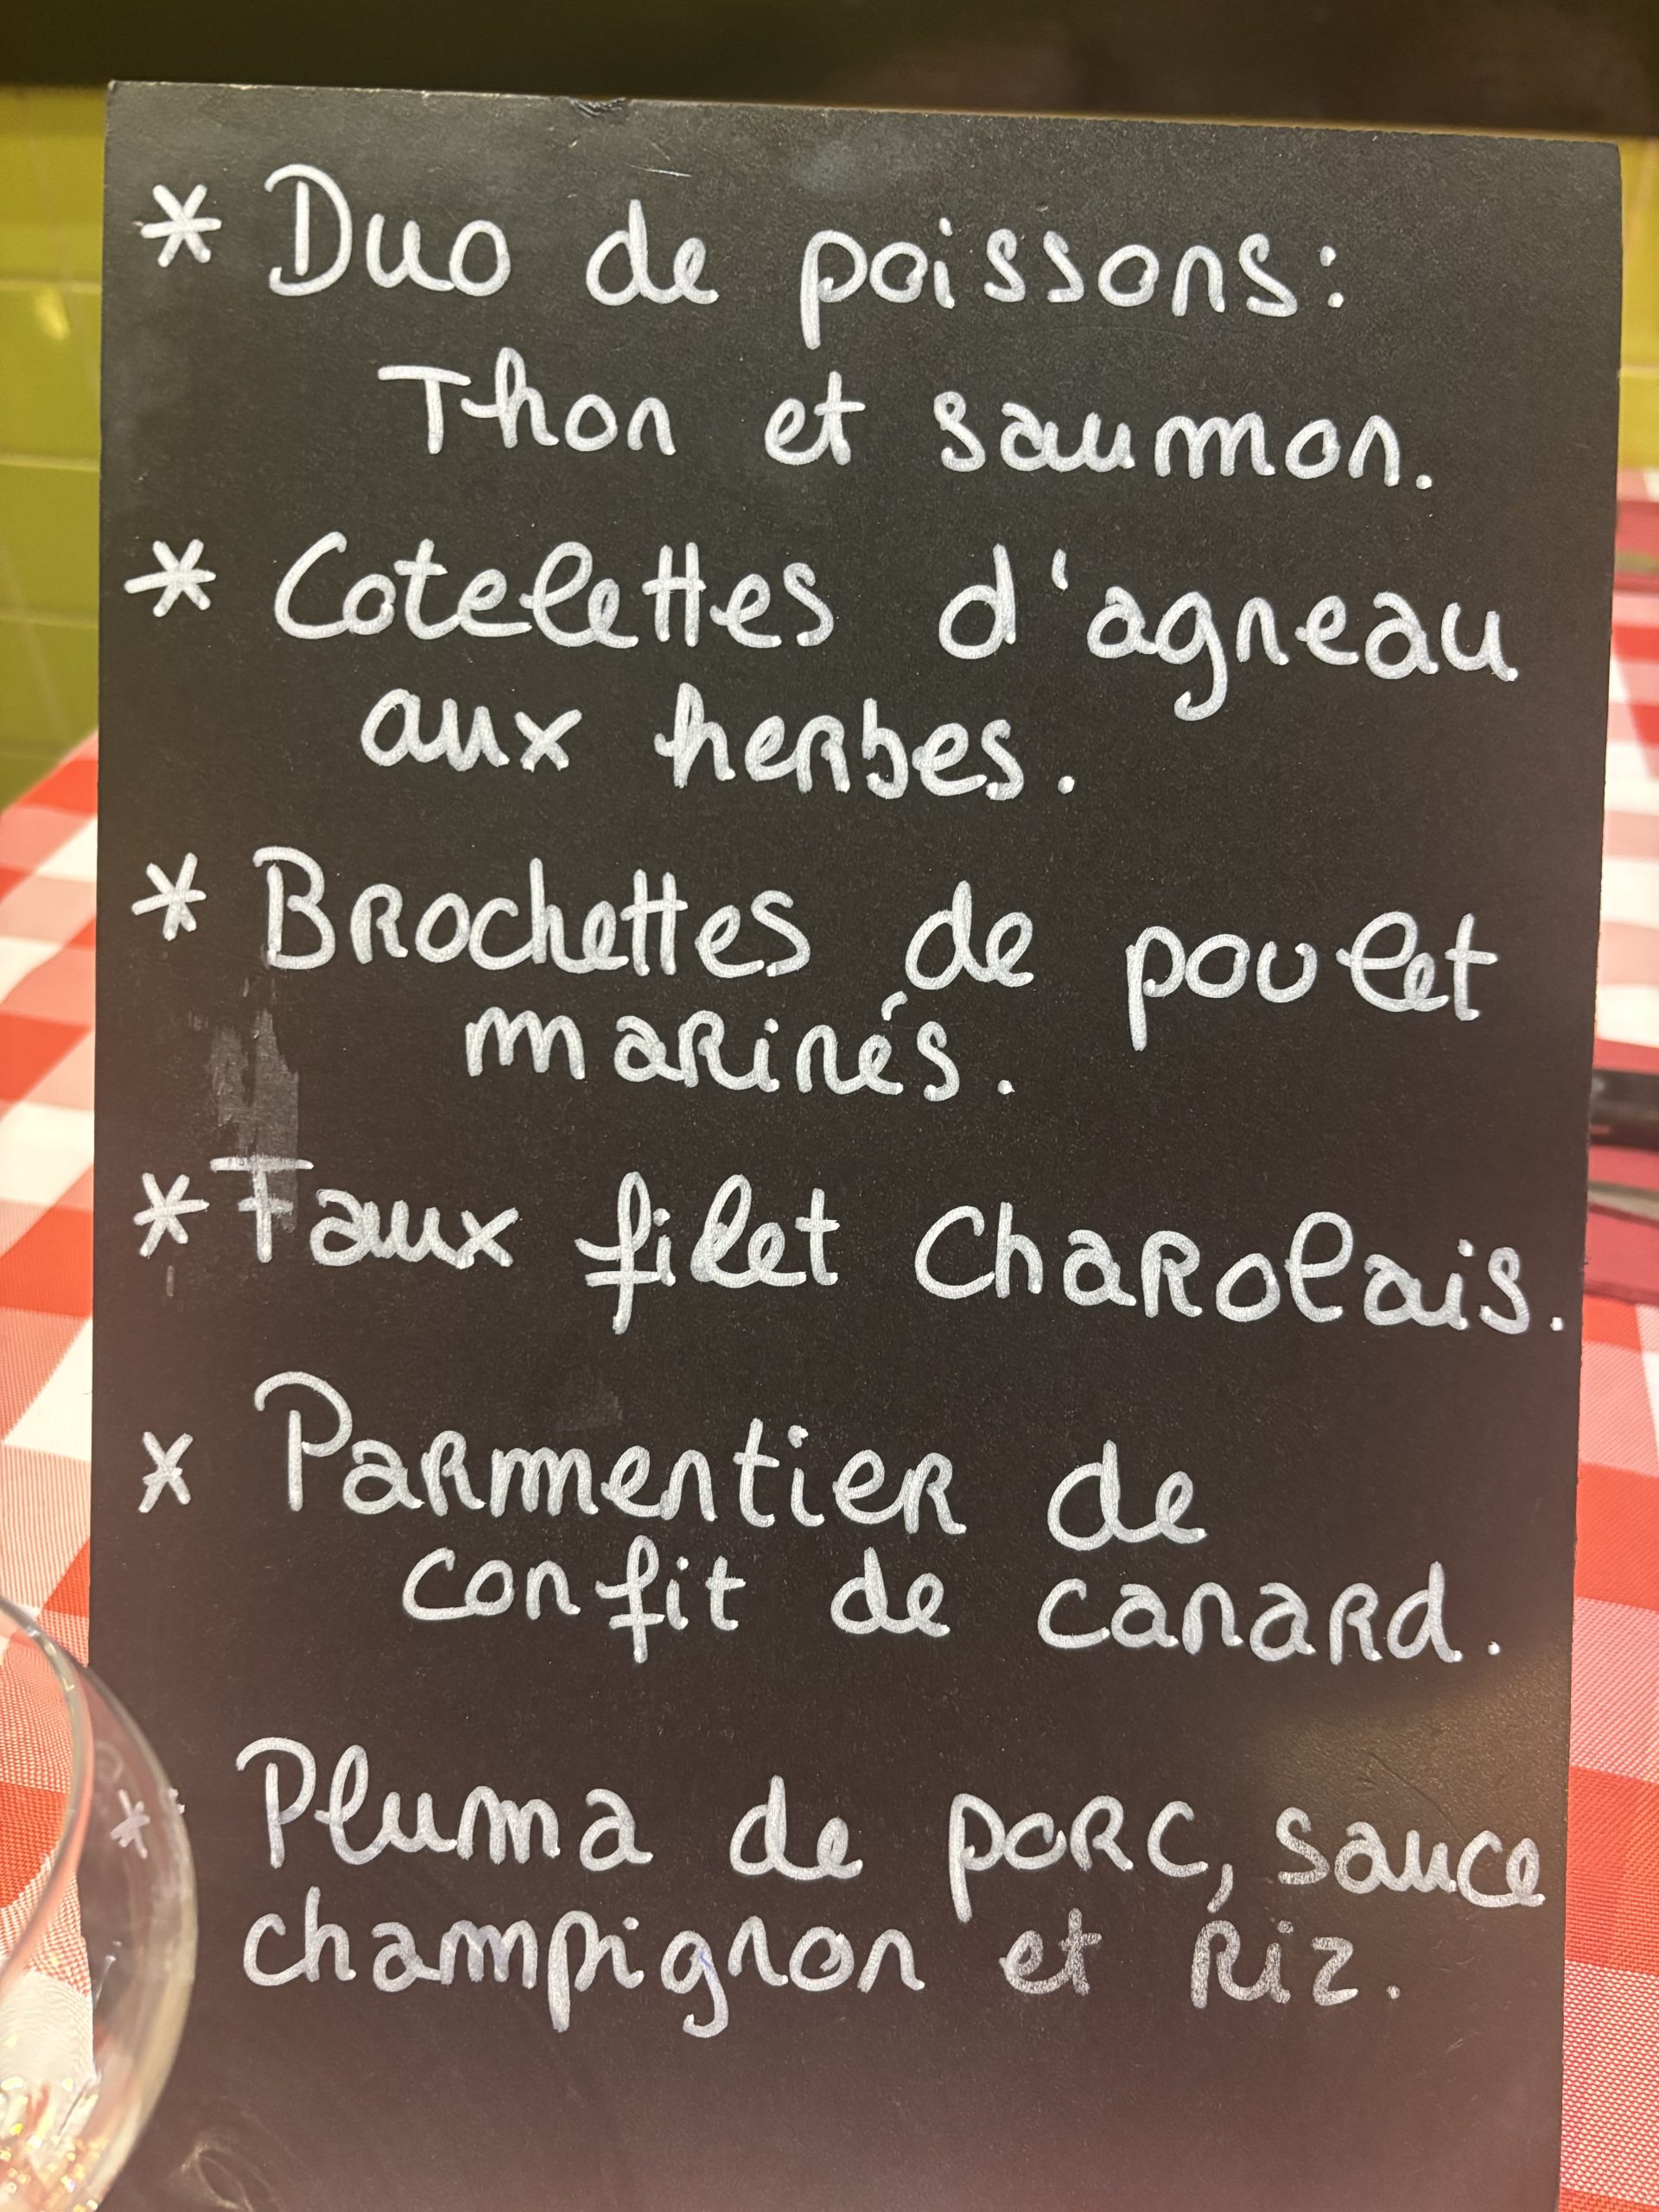 * Duo de poissons:
Thon et saumon.
* Cotelettes d'agneau
aux herbes.
* Brochettes de poulet
marinés.
* Faux filet Charolais.
* Parmentier de
confit de canard.
* Pluma de porc, sauce
champignon et riz.